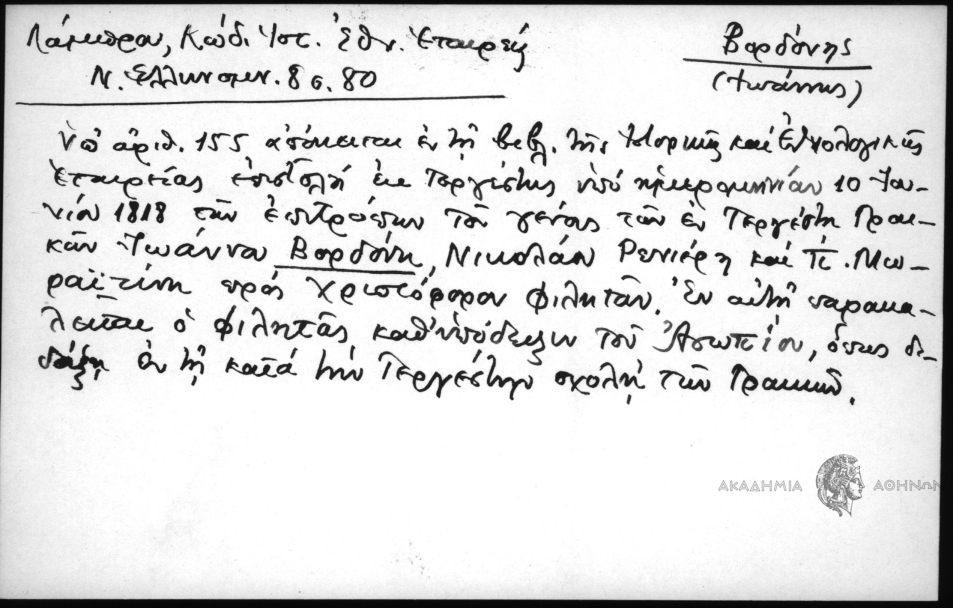 Λάμπρου, Κώδι Ἱστ. Ἐθν. Ἑταιρεί
Ν. Ἑλληνομν. 8 σ. 80
Βαρδόνης
(Ἰωάννης)
Ὑπ' ἀριθ. 155 ἀπόκειται ἐν τῇ βιβλ. τῆς Ἱστορικῆς καὶ Ἐθνολογικῆς
Ἑταιρείας ἐπιστολὴ ἐκ Τεργέστης ὑπὸ ἡμερομηνίαν 10 Ἰου-
νίου 1818 τῶν ἐπιτρόπων τοῦ γένους τῶν ἐν Τεργέστῃ Γραι-
κῶν Ἰωάννου Βορδόνη, Νικολάου Ρενιέρη καὶ Π. Μω-
ραϊτίνη πρὸς Χριστόφορον Φιλητᾶν. Ἐν αὐτῇ παρακα-
λεῖται ὁ Φιλητᾶς, καθ' ὑπόδειξιν τοῦ Ἀσωπίου, ὅπως δι-
δάξῃ ἐν τῇ κατὰ τὴν Τεργέστην σχολῇ τῶν Γραικῶν.
ΑΚΑΔΗΜΙΑ ΑΘΗΝΩΝ